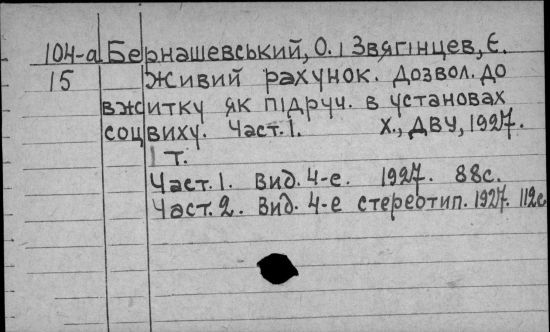 104-а Бернашевський, О. і Звягінцев, Є.
15 Живий рахунок. Дозвол. до
вжитку як підруч. в установах
соцвиху. Част. 1. Х., ДВУ, 1927.
1 т.
Част. 1. Вид. 4-е. 1927. 88с.
Част. 2. Вид. 4-е стереотип. 1927. 112с